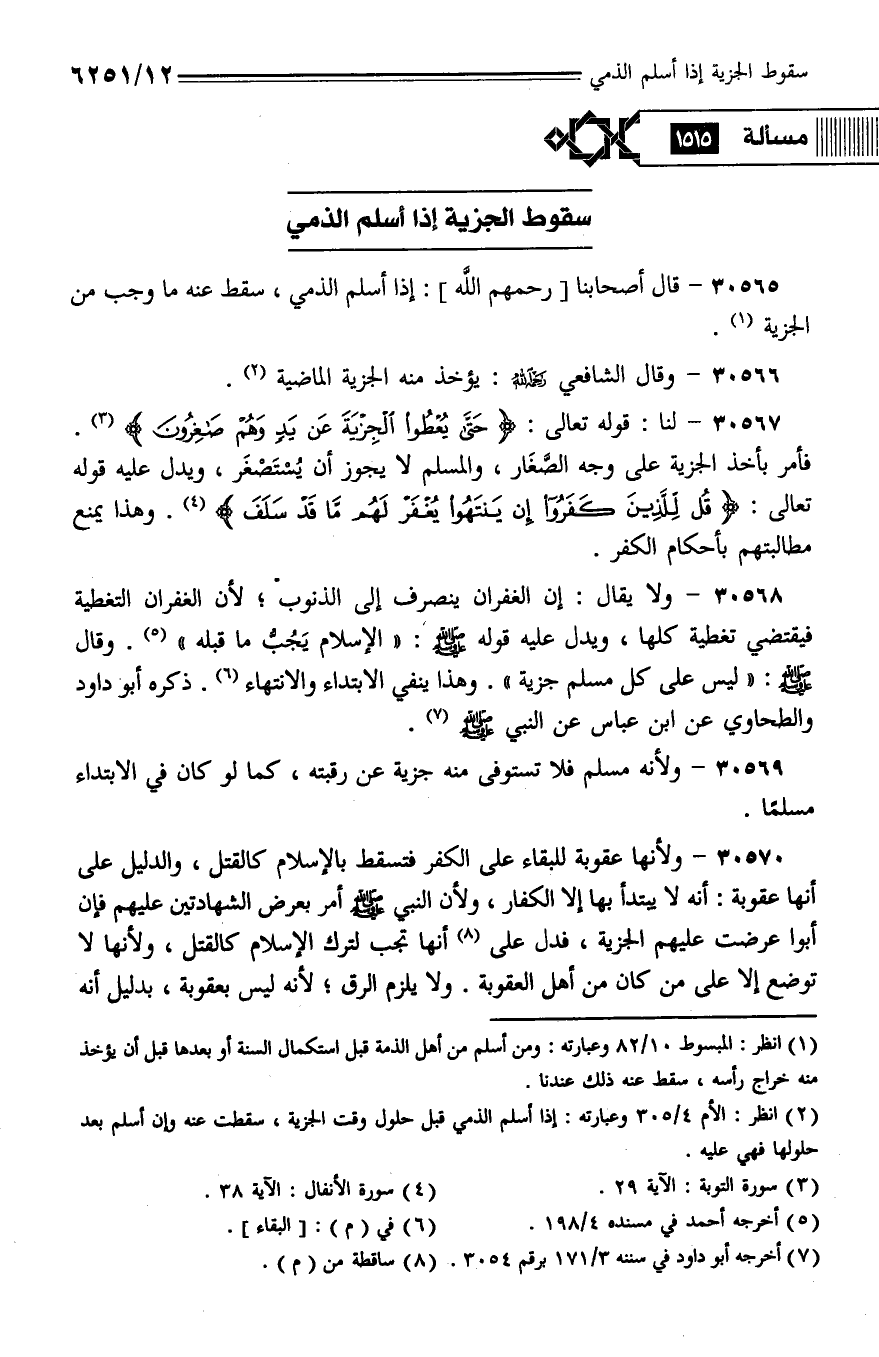 سقوط الجزية إذا أسلم الذمي ٦٢٥١/١٢
مسألة ١٥١٥
سقوط الجزية إذا أسلم الذمي
٣٠٥٦٥ – قال أصحابنا [ رحمهم اللَّه ] : إذا أسلم الذمي ، سقط عنه ما وجب من
الجزية (١) .
٣٠٥٦٦ – وقال الشافعي رحمه الله : يؤخذ منه الجزية الماضية (٢) .
٣٠٥٦٧ – لنا : قوله تعالى : ﴿ حَتَّىٰ يُعْطُوا۟ ٱلْجِزْيَةَ عَن يَدٍ وَهُمْ صَٰغِرُونَ ﴾ (٣) .
فأمر بأخذ الجزية على وجه الصَّغَار ، والمسلم لا يجوز أن يُسْتَصْغَر ، ويدل عليه قوله
تعالى : ﴿ قُل لِلَّذِينَ كَفَرُوٓا۟ إِن يَنتَهُوا۟ يُغْفَرْ لَهُم مَّا قَدْ سَلَفَ ﴾ (٤) . وهذا يمنع
مطالبتهم بأحكام الكفر .
٣٠٥٦٨ – ولا يقال : إن الغفران ينصرف إلى الذنوب ؛ لأن الغفران التغطية
فيقتضي تغطية كلها ، ويدل عليه قوله ﷺ : « الإسلام يَجُبُّ ما قبله » (٥) . وقال
ﷺ : « ليس على كل مسلم جزية » . وهذا ينفي الابتداء والانتهاء (٦) . ذكره أبو داود
والطحاوي عن ابن عباس عن النبي ﷺ (٧) .
٣٠٥٦٩ – ولأنه مسلم فلا تستوفى منه جزية عن رقبته ، كما لو كان في الابتداء
مسلمًا .
٣٠٥٧٠ – ولأنها عقوبة للبقاء على الكفر فتسقط بالإسلام كالقتل ، والدليل على
أنها عقوبة : أنه لا يبتدأ بها إلا الكفار ، ولأن النبي ﷺ أمر بعرض الشهادتين عليهم فإن
أبوا عرضت عليهم الجزية ، فدل على (٨) أنها تجب لترك الإسلام كالقتل ، ولأنها لا
توضع إلا على من كان من أهل العقوبة . ولا يلزم الرق ؛ لأنه ليس بعقوبة ، بدليل أنه
(١) انظر : المبسوط ٨٢/١٠ وعبارته : ومن أسلم من أهل الذمة قبل استكمال السنة أو بعدها قبل أن يؤخذ
منه خراج رأسه ، سقط عنه ذلك عندنا .
(٢) انظر : الأم ٣٠٥/٤ وعبارته : إذا أسلم الذمي قبل حلول وقت الجزية ، سقطت عنه وإن أسلم بعد
حلولها فهي عليه .
(٣) سورة التوبة : الآية ٢٩ . (٤) سورة الأنفال : الآية ٣٨ .
(٥) أخرجه أحمد في مسنده ١٩٨/٤ . (٦) في ( م ) : [ البقاء ] .
(٧) أخرجه أبو داود في سننه ١٧١/٣ برقم ٣٠٥٤ . (٨) ساقطة من ( م ) .